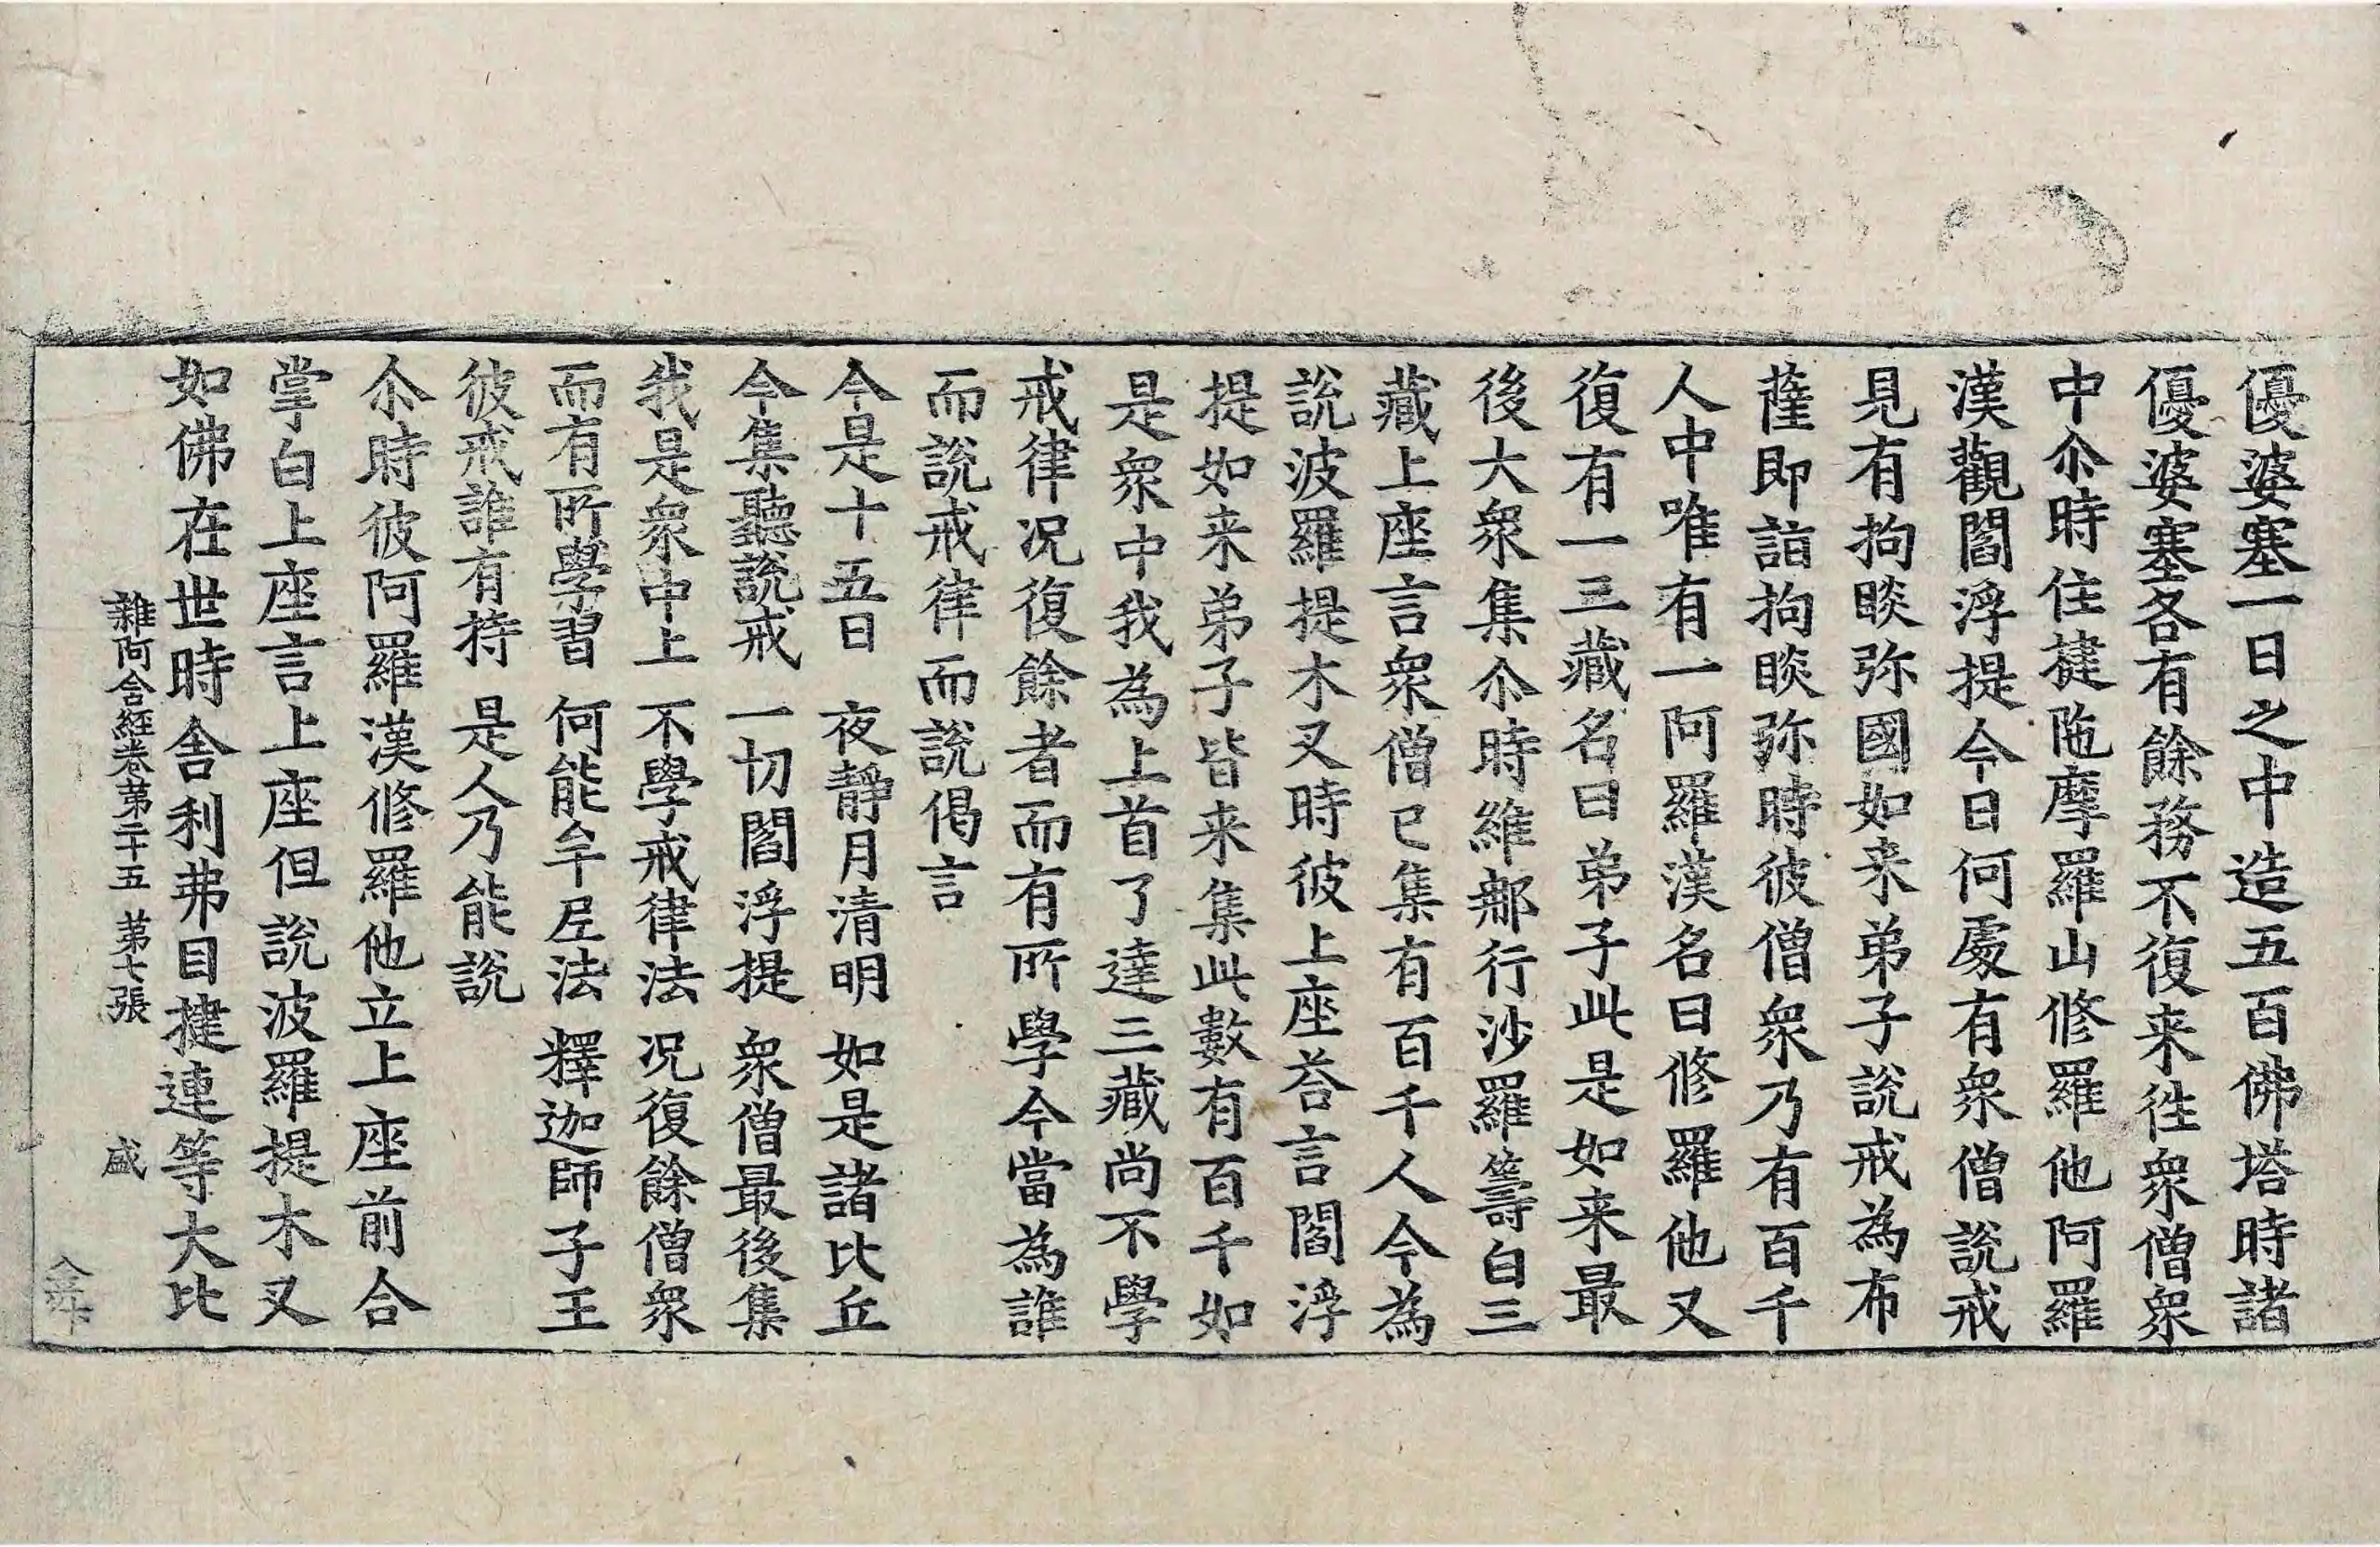 優婆塞一日之中造五百佛塔時諸
優婆塞各有餘務不復来徃衆僧衆
中尒時住揵陁摩羅山修羅他阿羅
漢觀閻浮提今日何處有衆僧說戒
見有拘睒弥國如来弟子說戒為布
薩即詣拘睒弥時彼僧衆乃有百千
人中唯有一阿羅漢名曰修羅他又
復有一三藏名曰弟子此是如来最
後大衆集尒時維那行沙羅籌白三
藏上座言衆僧已集有百千人今為
說波羅提木叉時彼上座荅言閻浮
提如来弟子皆来集此數有百千如
是衆中我為上首了達三藏尚不學
戒律况復餘者而有所學今當為誰
而說戒律而說偈言
今是十五日 夜靜月清明 如是諸比丘
今集聽說戒 一切閻浮提 衆僧最後集
我是衆中上 不學戒律法 况復餘僧衆
而有所學習 何能牟尼法 釋迦師子王
彼戒誰有持 是人乃能說
尒時彼阿羅漢修羅他立上座前合
掌白上座言上座但說波羅提木叉
如佛在世時舍利弗目揵連等大比
雜阿含經卷第二十五 第七張 盛